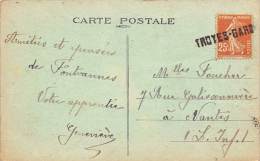 CARTE POSTALE
TROYES-GARE
25
Amitiés et pensées
de Fontvannes
Votre apprentie
Geneviève
Melles Foucher
7 Rue Galissonnière
à Nantes
(L. Inf.)